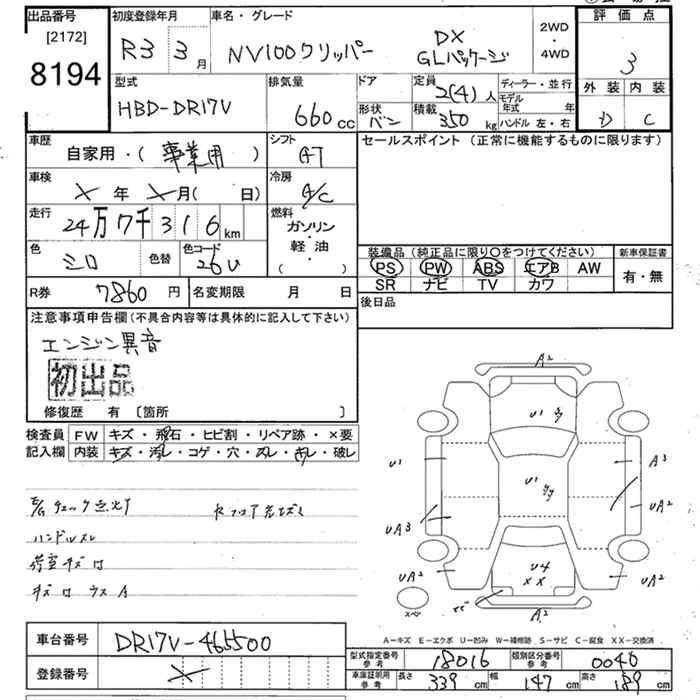 出品番号 初度登録年月 車名・グレード 評価点
[2172]
8194
R3 3月 NV100クリッパー DX GLパッケージ 2WD・4WD 3
型式 排気量 ドア 定員 ディーラー・並行 外装 内装
HBD-DR17V 660cc 2(4)人 モデル年式 年 D C
形状 バン 積載 350kg ハンドル 左・右
車歴 シフト セールスポイント (正常に機能するものに限ります)
自家用・(事業用) AT
車検 冷房
×年 ×月( 日) A/C
走行 24万7千316km 燃料 ガソリン・軽・油・( )
色 シロ 色替 色コード 26U
装備品(純正品に限り○をつけてください) 新車保証書
PS PW ABS エアB AW 有・無
SR ナビ TV カワ
R券 7860円 名変期限 月 日 後日品
注意事項申告欄(不具合内容等は具体的に記入して下さい)
エンジン異音
初出品
修復歴 有 [箇所 ]
検査員 FW キズ・飛石・ヒビ割・リペア跡・×要
記入欄 内装 キズ・汚レ・コゲ・穴・スレ・キレ・破レ
E/Gチェック点灯
ハンドルスレ
荷室キズ
A2
U1
U1
U1
A3
UA2
UA3
U4
××
UA2
UA2
A2
スペア
A－キズ E－エクボ U－凹み W－補修跡 S－サビ C－腐食 XX－交換済
車台番号 DR17V-465500
登録番号 ×
型式指定番号 参考 18016 類別区分番号 参考 0040
車庫証明用 参考 長さ 339cm 幅 147cm 高さ 189cm